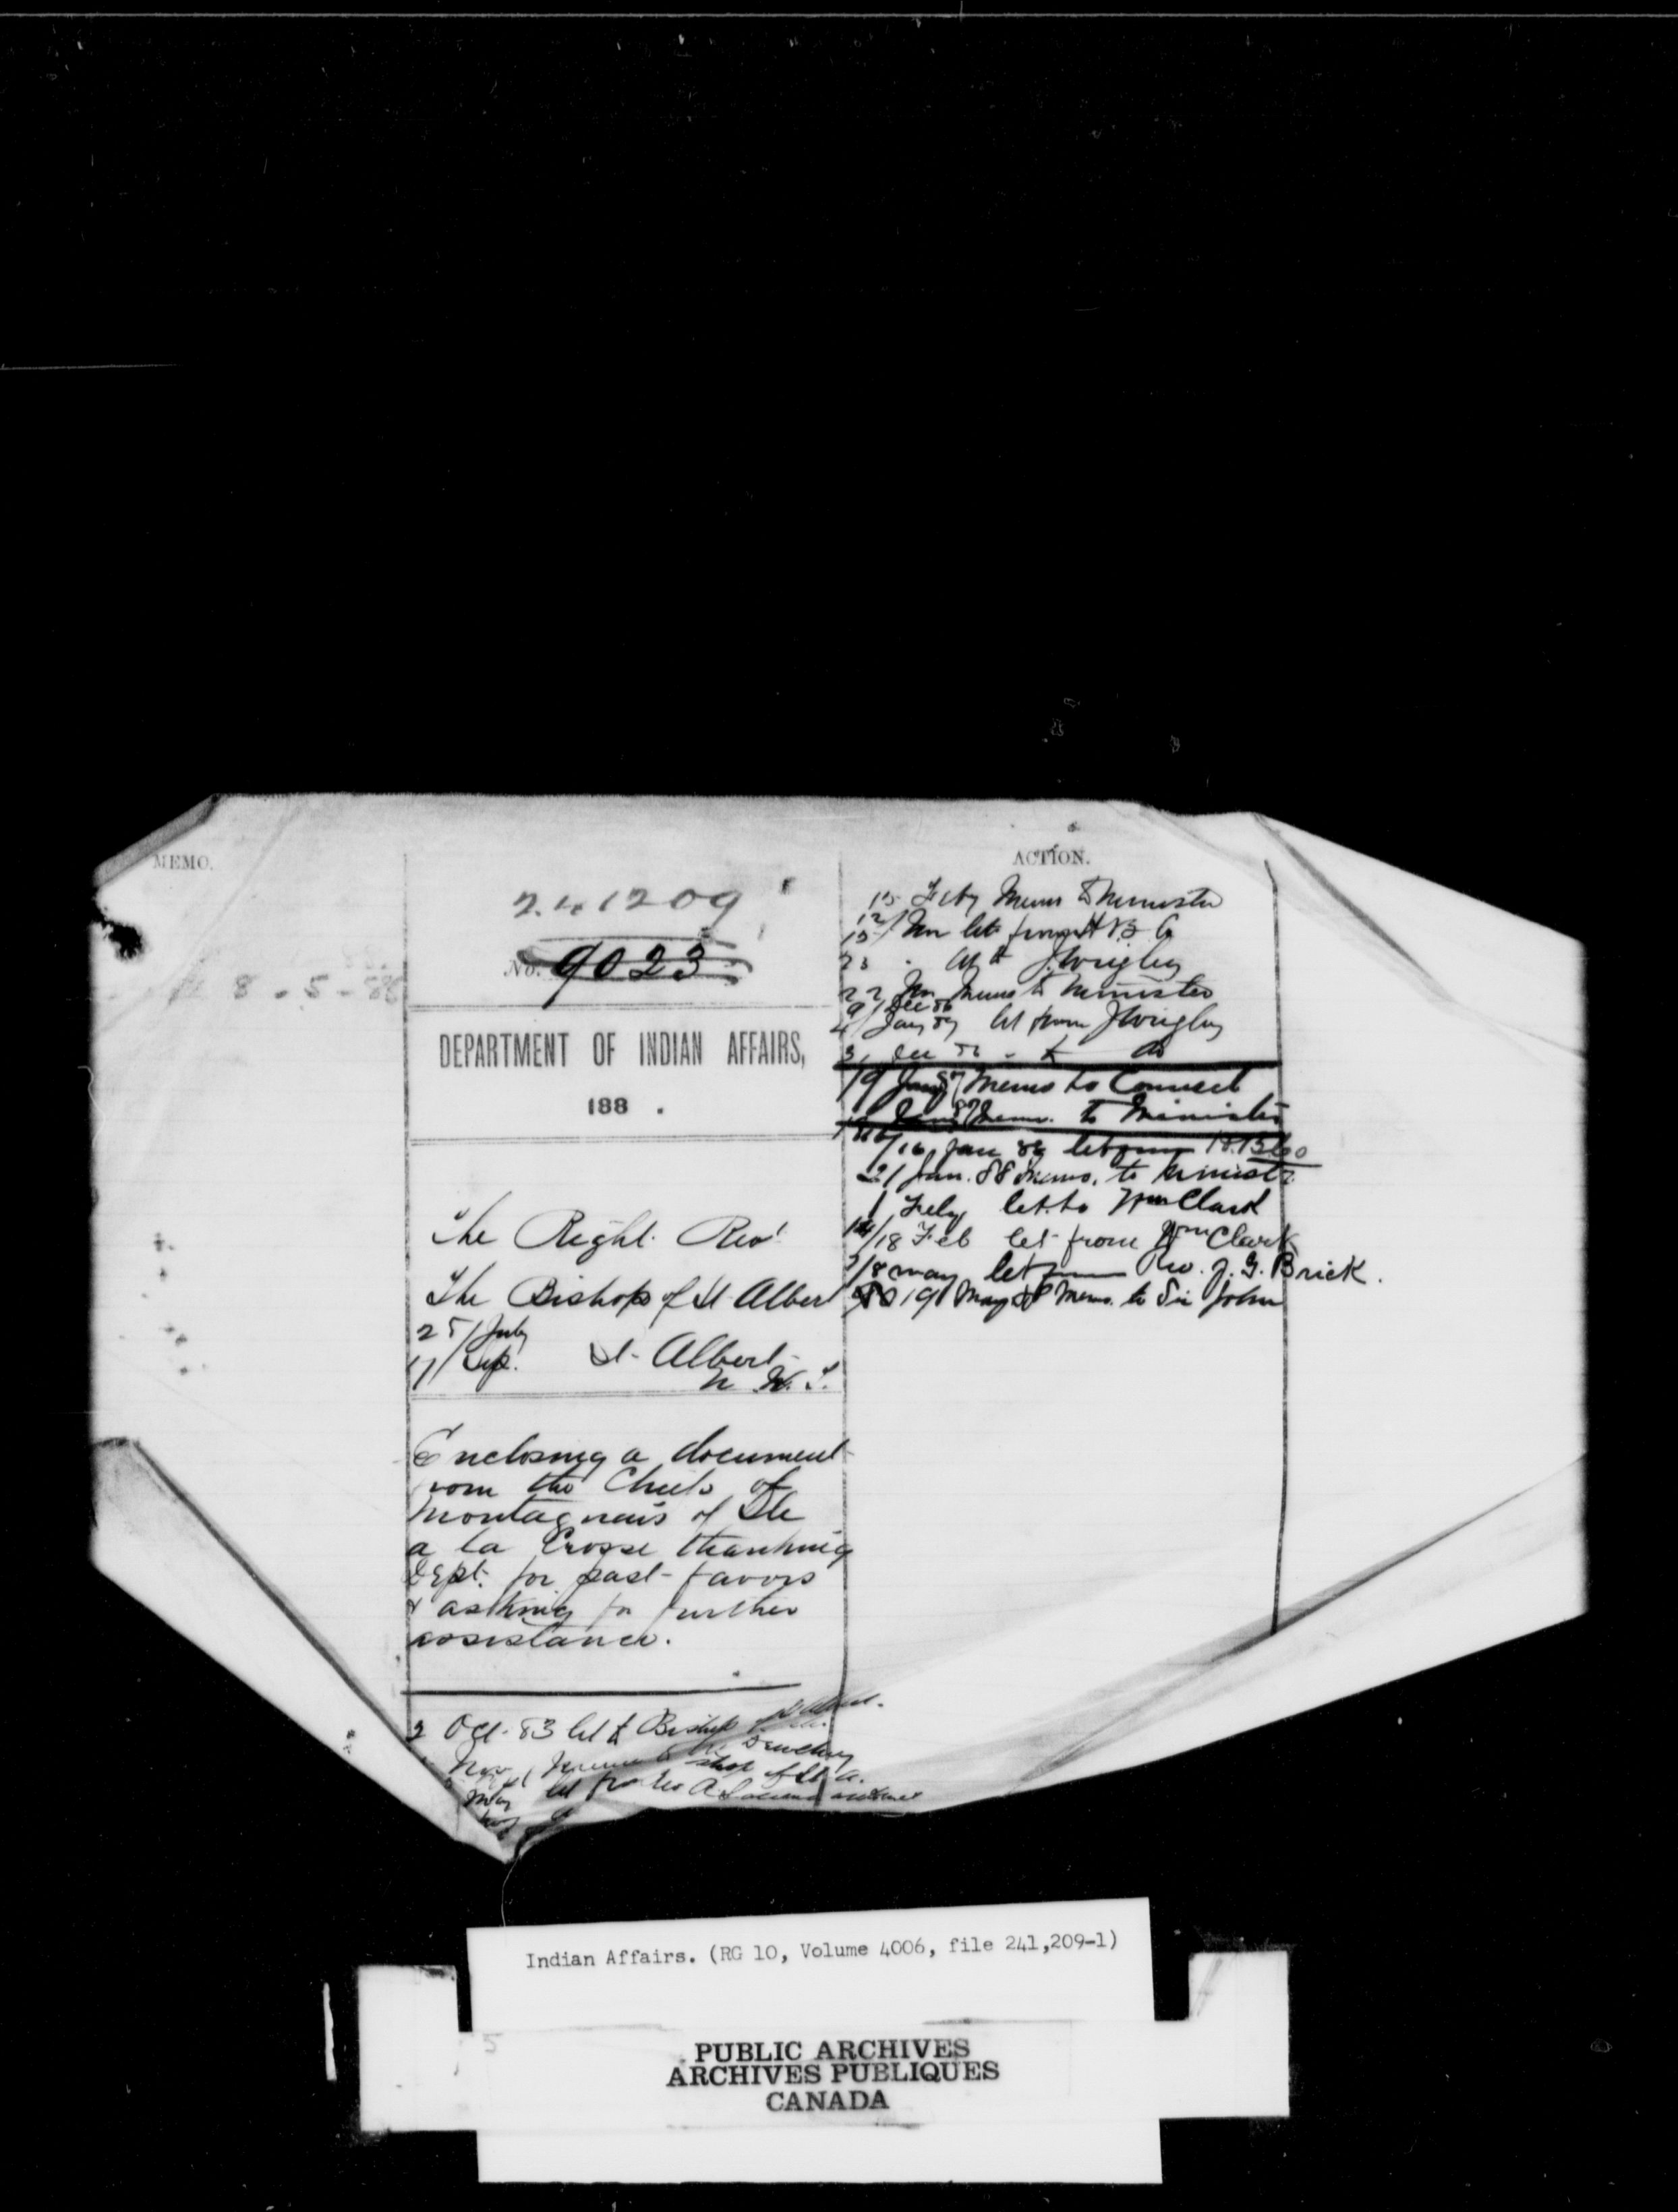 MEMO.
8-5-86
241209
No. 9023
DEPARTMENT OF INDIAN AFFAIRS,
188 .
The Right. Revd
The Bishop of St Albert
25/July
17/Sep. St-Albert-
N. W. T.
Enclosing a document
from the Chiefs of
Montagnais of Ile
a la Crosse thanking
Dept. for past favors
& asking for further
assistance.
2 Oct. 83 let to Bishop of St Albert.
Nov Memo to Mr Dewdney
of St. A.
May let
ACTION.
15 Feby Memo to Minister
12/15/ Jan let from H B Co
23 . let to J Wrigley
22 Jan Memo to Minister
9/Dec 86
4/Jany 87 let from J Wrigley
31 Dec 86 - to do
19 Jany 87 Memo to Council
Jany 87 Memo. to Minister
/16 Jan 88 let from H.B.Co
21 Jan. 88 Memo. to Minister
1 Feby let. to Wm Clark
14/18 Feb let from Wm Clark
/8 May let from Rev. J. G. Brick.
19 May 88 Memo. to Sir John
Indian Affairs. (RG 10, Volume 4006, file 241,209-1)
PUBLIC ARCHIVES
ARCHIVES PUBLIQUES
CANADA